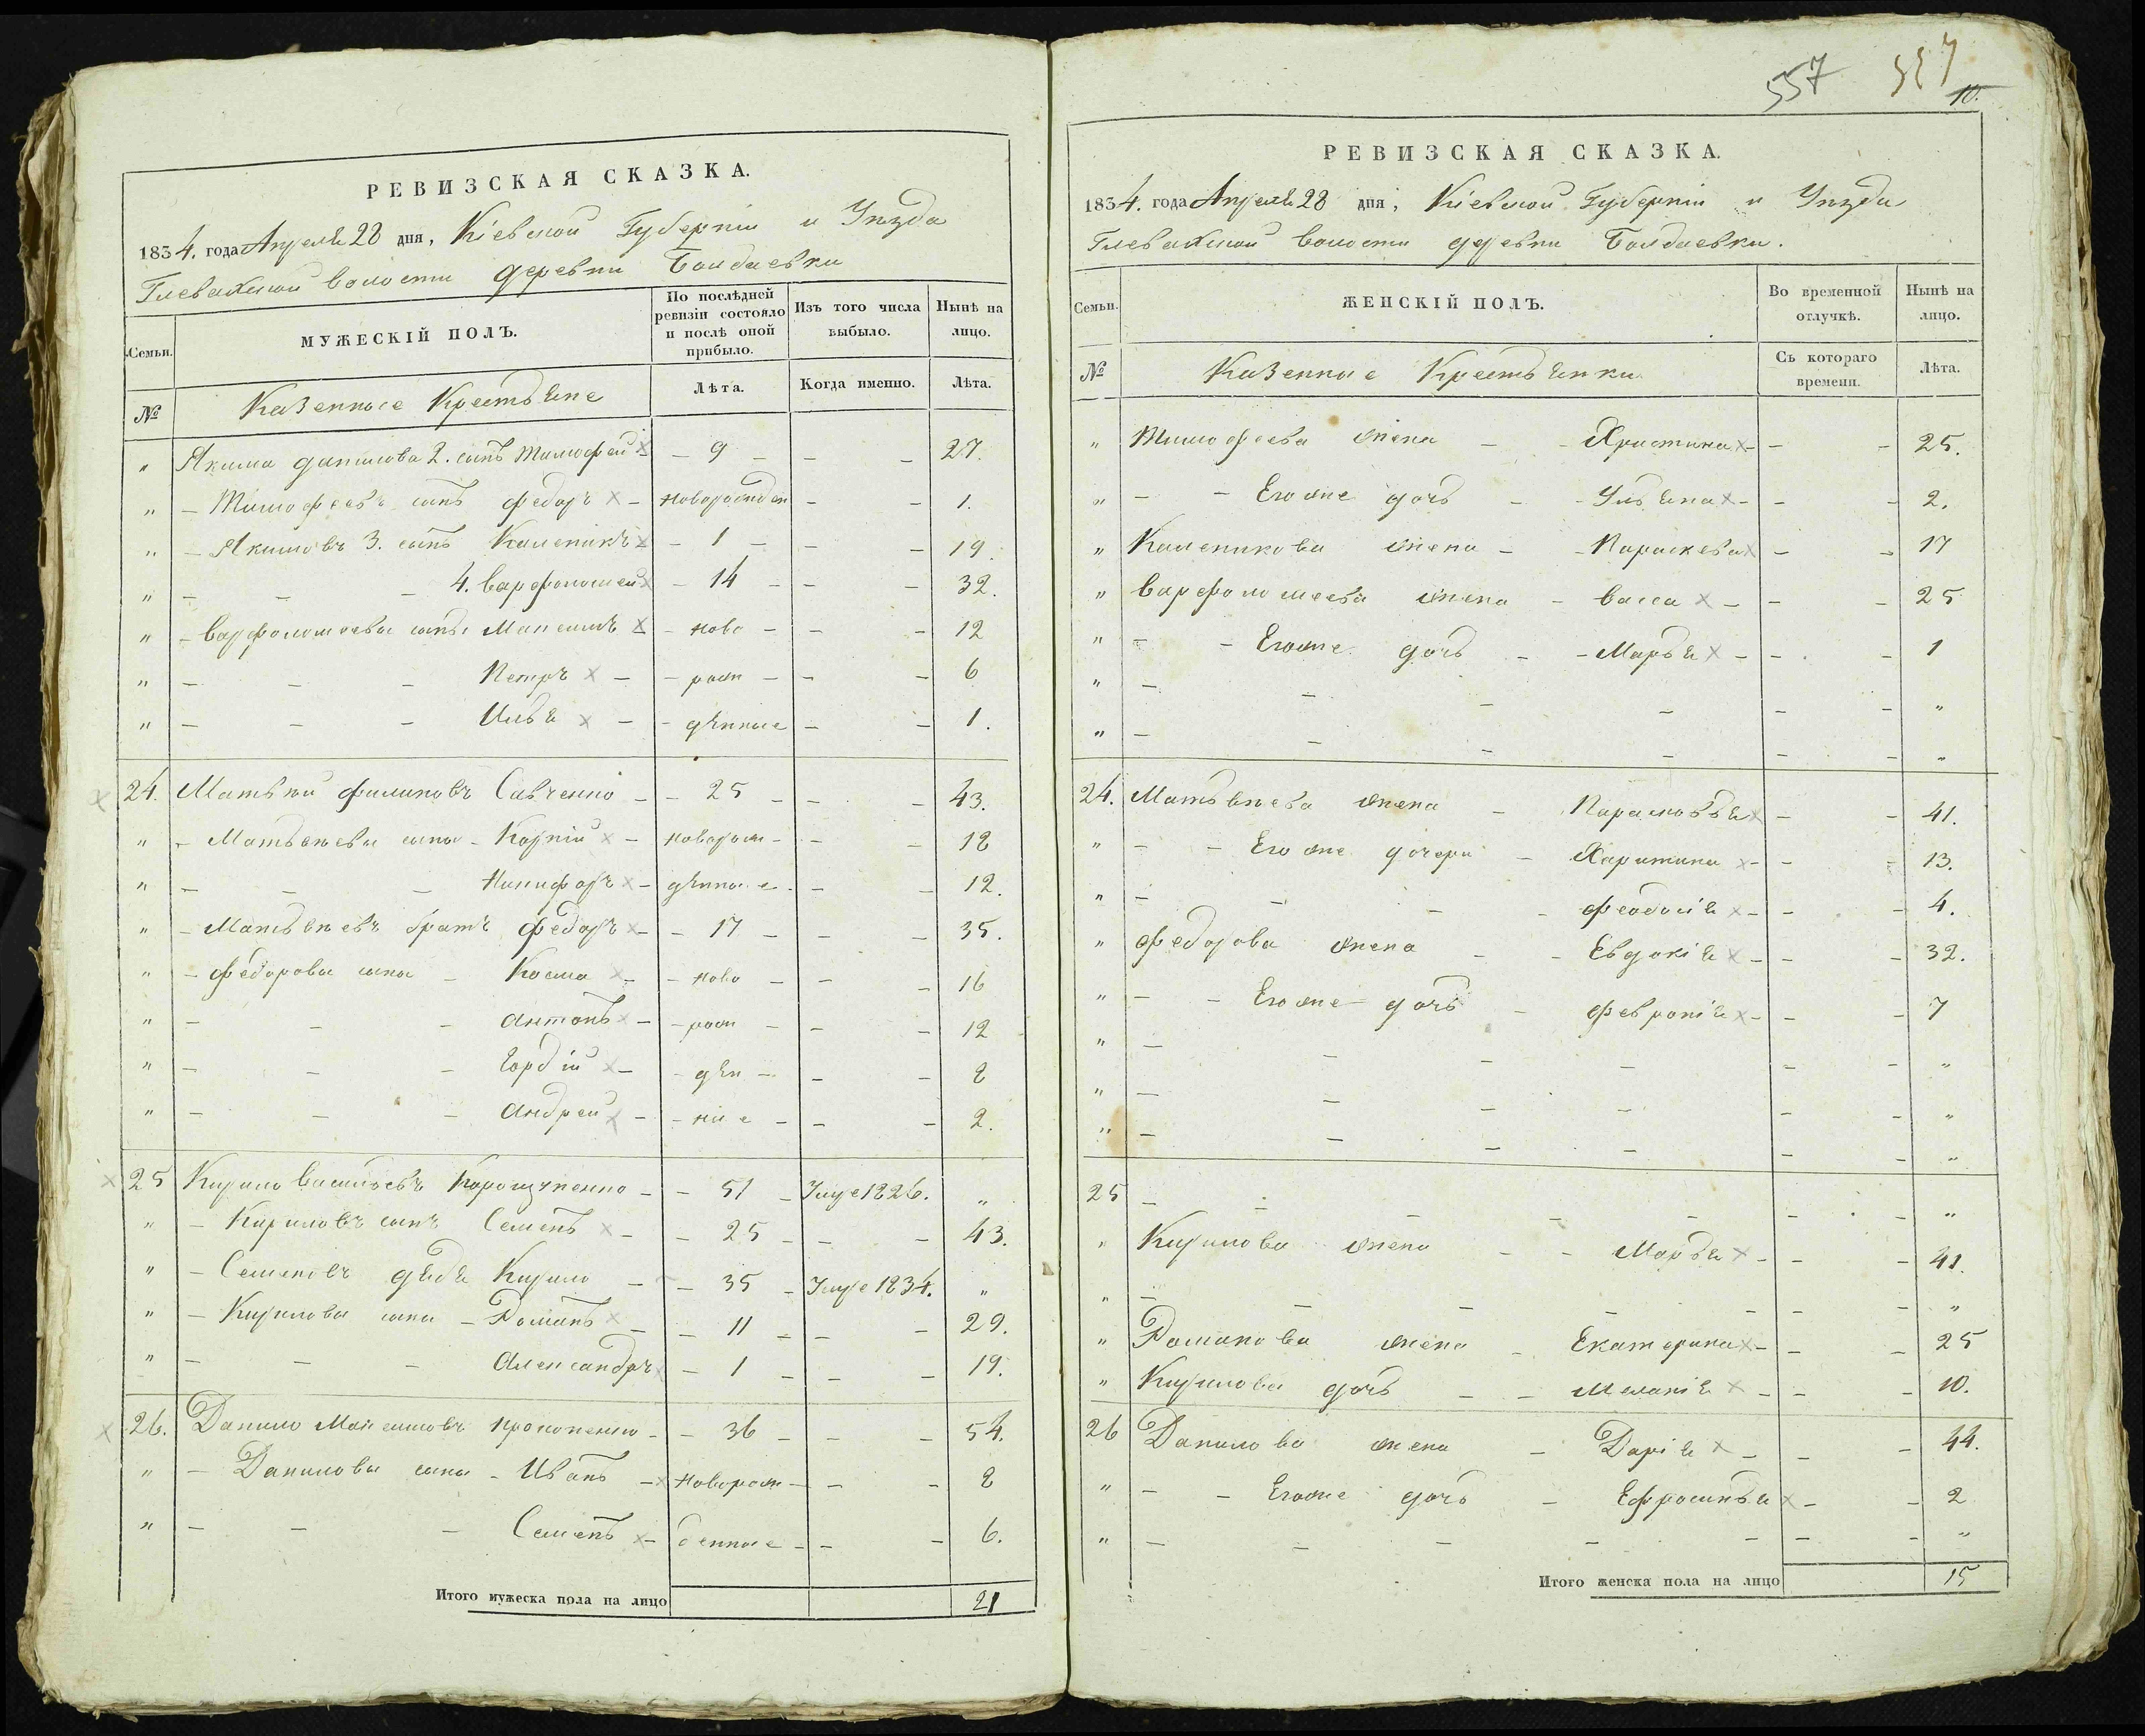 РЕВИЗСКАЯ СКАЗКА.
1834. года Апреля 28 дня, Кіевской Губерніи и Уѣзда
Глевахской волости деревни Болдаевки
Семьи.
МУЖЕСКІЙ ПОЛЪ.
По послѣдней ревизіи состояло и послѣ оной прибыло.
Изъ того числа выбыло.
Нынѣ на лицо.
№
Казенные Крестьяне
Лѣта.
Когда именно.
Лѣта.
" Якима данилова 2. сынъ Тимофей х – 9 – – – 27.
" – Тимофеевъ сынъ федоръ х – новорожден – – 1.
" – Якимовъ 3. сынъ Каленикъ х – 1 – – – 19.
" – – – 4. варфоломей х – 14 – – – 32.
" – варфоломеевы сыны Мансимъ х – ново – – – 12
" – – – Петръ х – – рож – – – 6
" – – – Илья х – – дѣнные – – 1.
х 24. Матвѣй филиповъ Савченко – – 25 – – – 43.
" – Матвѣевы сыны – Корній х – новорож – – – 18
" – – – Никифоръ х – дѣнные – – – 12.
" – Матвѣевъ братъ федоръ х – – 17 – – – 35.
" – федоровы сыны – Косма х – – ново – – – 16
" – – – Антонъ х – – рож – – – 12
" – – – Гордій х – – дѣн – – – 8
" – – – Андрей х – – ные – – – 2.
х 25 Кирило васильевъ Корощупенко – – 51 – Умре 1826. "
" – Кириловъ сынъ Семенъ х – – 25 – – – 43.
" – Семеновъ дядя Кирило – – 35 – Умре 1834. "
" – Кириловы сыны – Романъ х – – 11 – – – 29.
" – – – Александръ х – 1 – – – 19.
х 26. Данило Максимовъ прокопенко – – 36 – – – 54.
" – Даниловы сыны – Иванъ – х новорож – – – 8
" – – – Семенъ х – денные – – – 6.
Итого мужеска пола на лицо 21
557
557
10.
РЕВИЗСКАЯ СКАЗКА.
1834. года Апреля 28 дня, Кіевской Губерніи и Уѣзда
Глевахской волости деревни Болдаевки.
Семьи.
ЖЕНСКІЙ ПОЛЪ.
Во временной отлучкѣ.
Нынѣ на лицо.
№
Казенные Крестьянки
Съ котораго времени.
Лѣта.
" Тимофеева жена – – Христина х – – – 25.
" – – Егоже дочь – – Ульяна х – – – 2.
" Каленикова жена – – Параскева х – – 17
" варфоломеева жена – васса х – – – 25
" – – Егоже дочь – – Марья х – – – 1
" – – – – – – "
" – – – – – – "
24. Матвѣева жена – Парасковья х – – 41.
" – – Егоже дочери – Харитина х – – – 13.
" – – – – феодосія х – – – 4.
" федорова жена – – Евдокія х – – – 32.
" – – Егоже дочь – февронія х – – – 7
" – – – – – – "
" – – – – – – "
" – – – – – – "
25 – – – – – – – "
" Кирилова жена – – Марья х – – – 41.
" – – – – – – – "
" Романова жена – Екатерина х – – – 25
" Кирилова дочь – – Меланія х – – – 10.
26 Данилова жена – Дарія х – – – 44.
" – – Егоже дочь – Ефросинья х – – 2
" – – – – – – – "
Итого женска пола на лицо 15